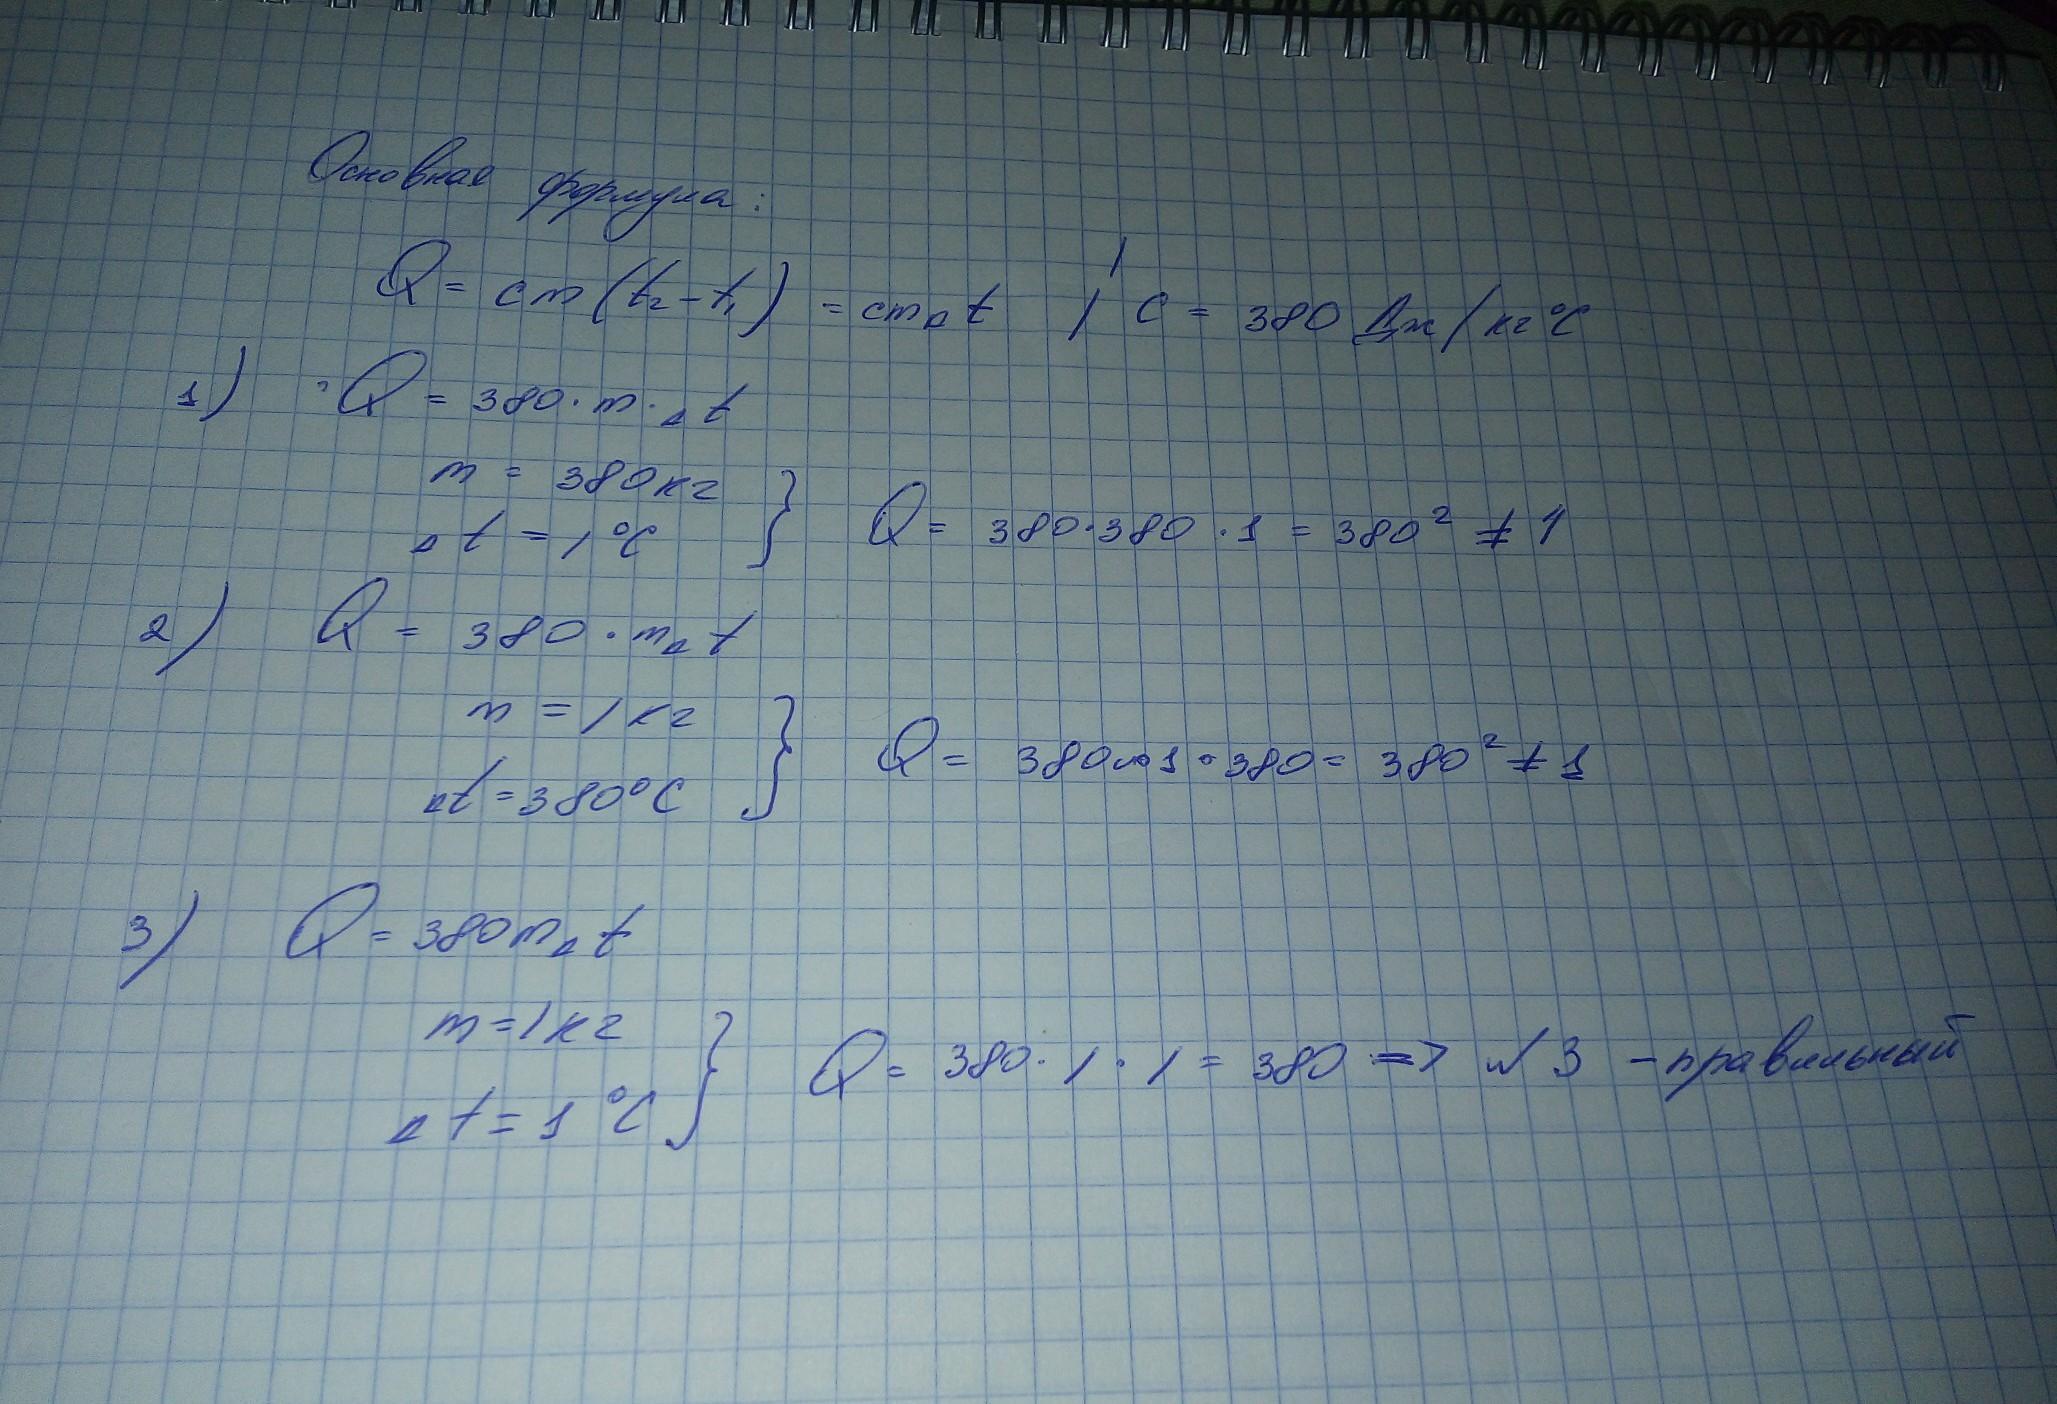 Основная формула:
Q = cm(t₂-t₁) = cmΔt / c = 380 Дж/кг°C
1) Q = 380·m·Δt
m = 380кг
Δt = 1°C } Q = 380·380·1 = 380² ≠ 1
2) Q = 380·mΔt
m = 1кг
Δt = 380°C } Q = 380·1·380 = 380² ≠ 1
3) Q = 380mΔt
m = 1кг
Δt = 1°C } Q = 380·1·1 = 380 => №3 - правильный